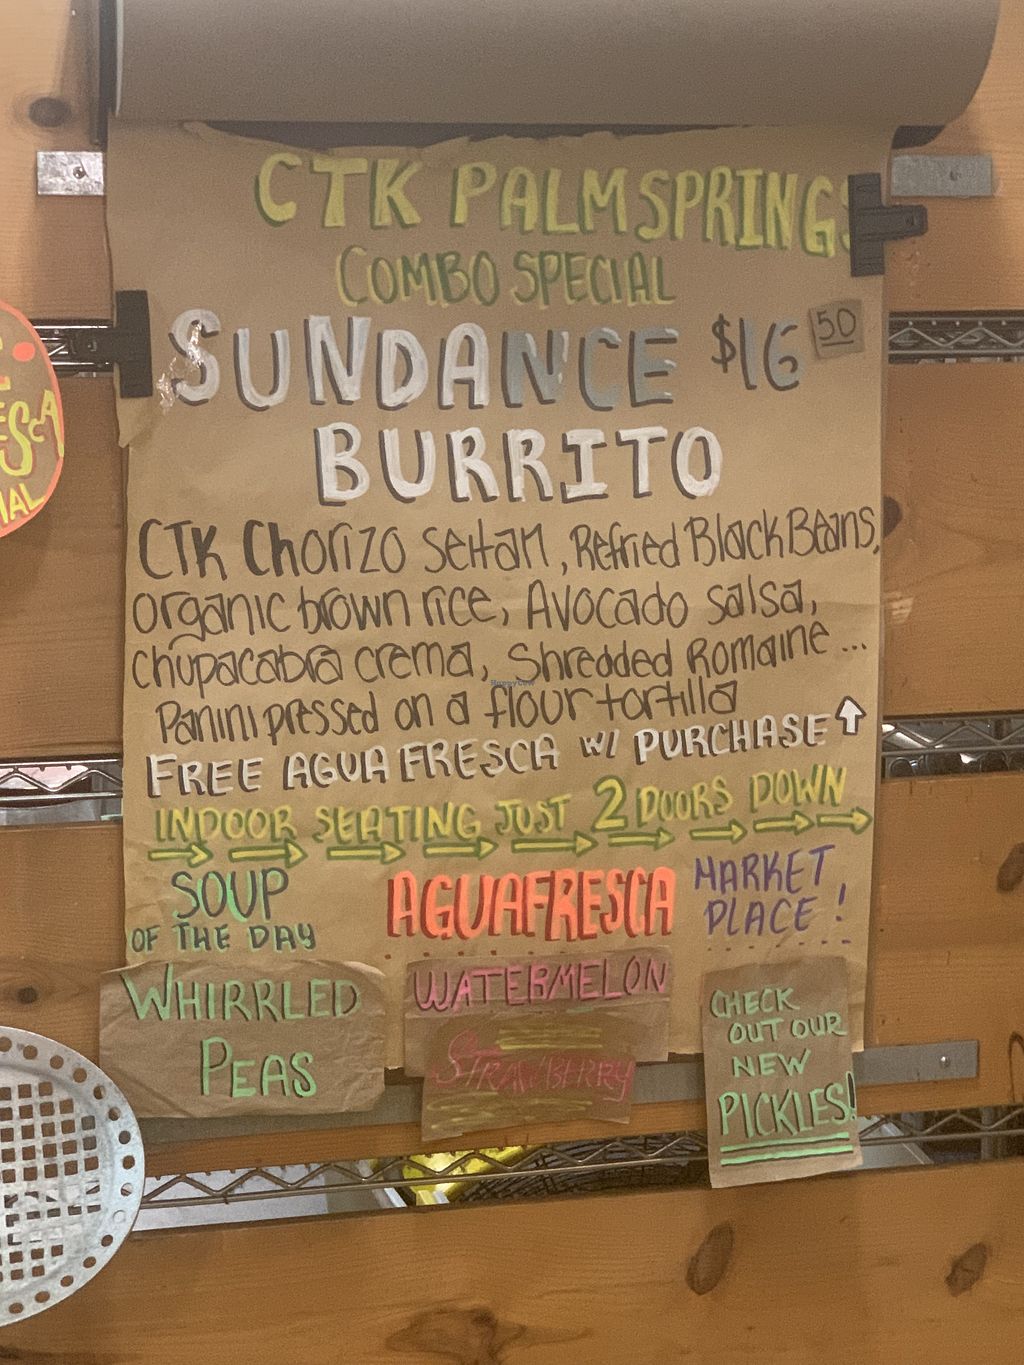 CTK PALM SPRINGS
COMBO SPECIAL
SUNDANCE $16 50
BURRITO
CTK Chorizo Seitan, Refried Black Beans,
organic brown rice, Avocado salsa,
chupacabra crema, Shredded Romaine ...
Panini pressed on a flour tortilla
FREE AGUA FRESCA w/ PURCHASE ↑
INDOOR SEATING JUST 2 DOORS DOWN
→ → → → → → → →
SOUP
OF THE DAY
WHIRRLED
PEAS
AGUA FRESCA
WATERMELON
STRAWBERRY
MARKET
PLACE!
CHECK
OUT OUR
NEW
PICKLES!
HappyCow